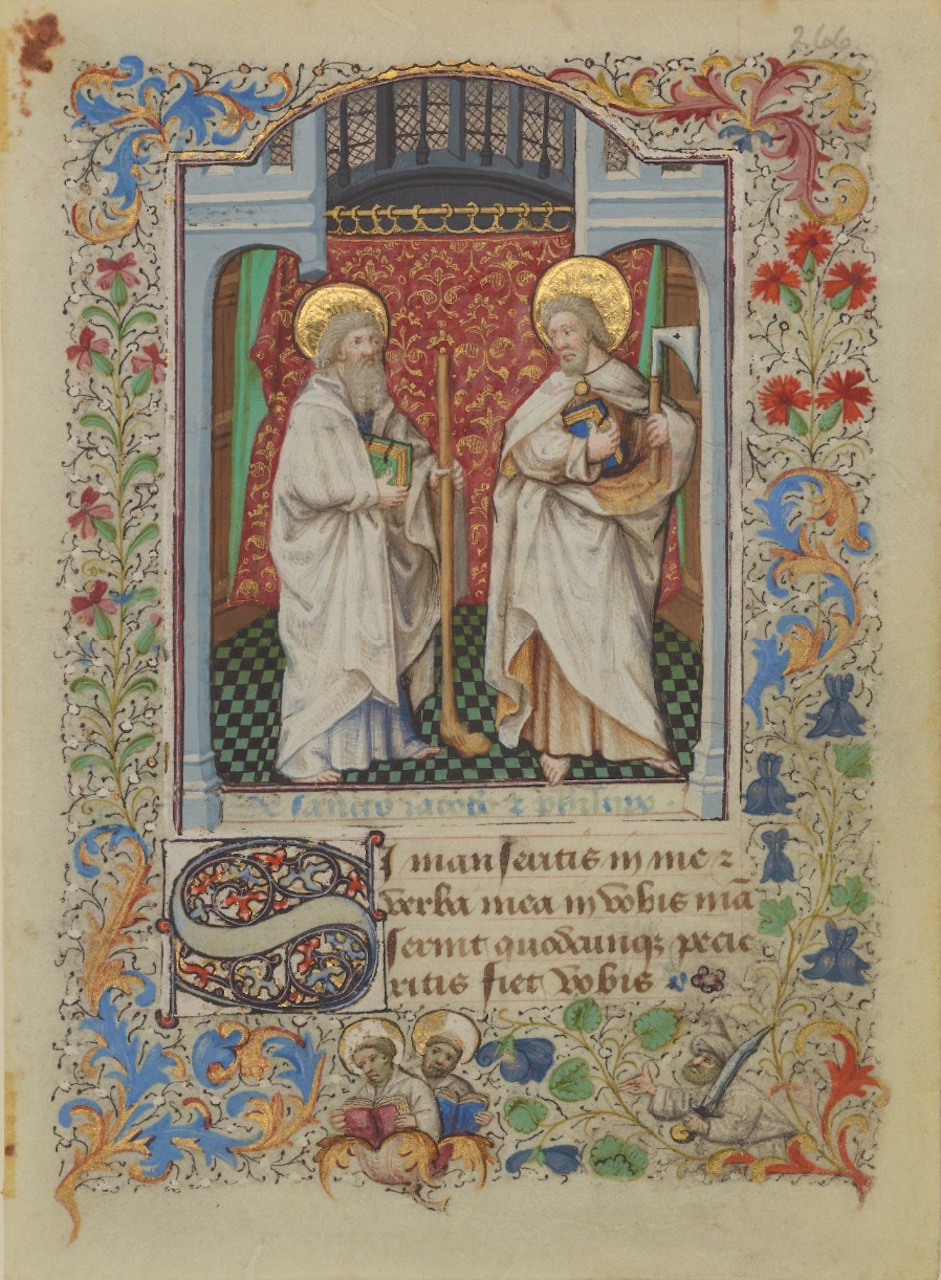 266
De sancto iacobo ⁊ philippo.
SI manseritis in me ⁊
verba mea in vobis mā
serint quodcunqꝫ pecie
ritis fiet vobis